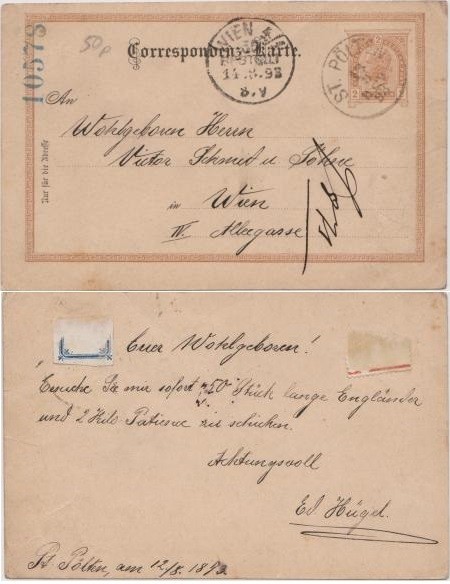 10578
50p
Correspondenz-Karte.
WIEN
14.8.93
8.V
ST. PÖLTEN
2 2
An
Nur für die Adresse
Wohlgeboren Herrn
Victor Schmidt u Söhne
in Wien
IV. Alleegasse
Euer Wohlgeboren!
Ersuche Sie mir sofort 50 Stück lange Engländer
und 2 Kilo Patiene zu schicken.
Achtungsvoll
Ed Hügel.
St Pölten, am 12/8. 1893.